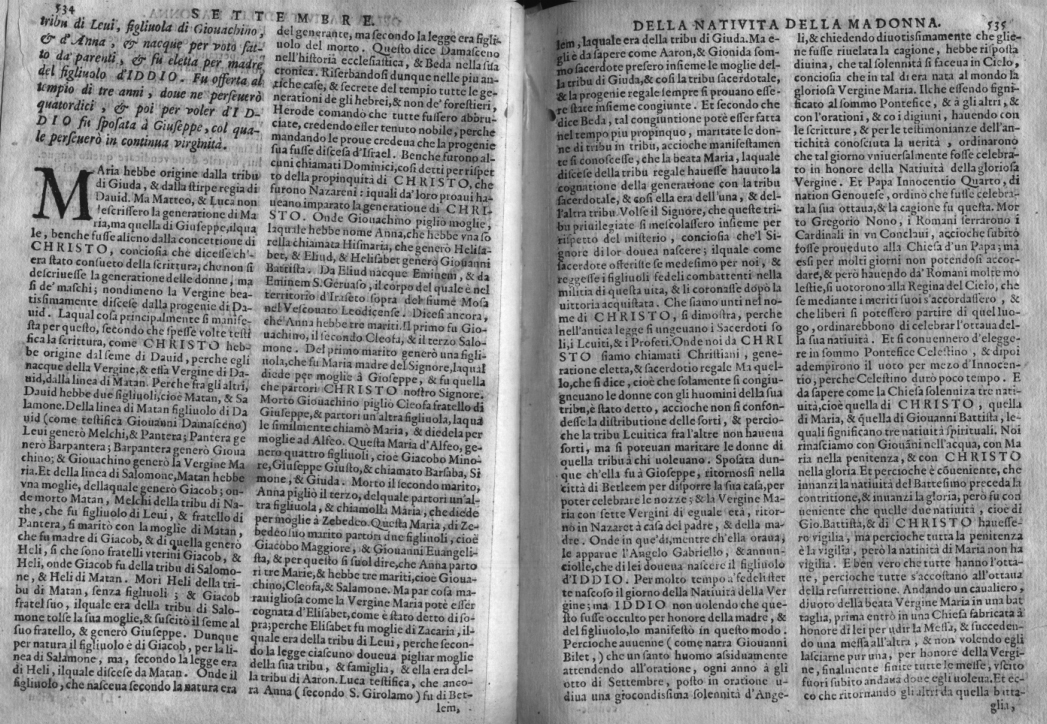 534
SETTEMBRE.
tribu di Leui, figliuola di Giouachino,
& d'Anna, & nacque per voto fat-
to da parenti, & fu eletta per madre
del figliuolo d'IDDIO. Fu offerta al
tempio di tre anni, doue ne perseuerò
quatordici, & poi per voler d'ID-
DIO fu sposata à Giuseppe, col qua-
le perseuerò in continua virginità.
MAria hebbe origine dalla tribu
di Giuda, & dalla stirpe regia di
Dauid. Ma Matteo, & Luca non
descrissero la generatione di Ma
ria, ma quella di Giuseppe, ilqua
le, benche fusse alieno dalla concettione di
CHRISTO, conciosia che dicesse ch'-
era stato consueto della scrittura, che non si
descriuesse la generatione delle donne, ma
si de' maschi; nondimeno la Vergine bea-
tissimamente discese dalla progenie di Da-
uid. Laqual cosa principalmente si manife-
sta per questo, secondo che spesse volte testi
fica la scrittura, come CHRISTO heb-
be origine dal seme di Dauid, perche egli
nacque della Vergine, & essa Vergine di Da-
uid, dalla linea di Matan. Perche fra gli altri,
Dauid hebbe due figliuoli, cioè Matan, & Sa
lamone. Della linea di Matan figliuolo di Da
uid (come testifica Giouanni Damasceno)
Leui generò Melchi, & Pantera; Pantera ge
nerò Barpantera; Barpantera generò Gioua
chino; & Giouachino generò la Vergine Ma
ria. Et della linea di Salomone, Matan hebbe
vna moglie, dellaquale generò Giacob; on-
de morto Matan, Melchi della tribu di Na-
the, che fu figliuolo di Leui, & fratello di
Pantera, si maritò con la moglie di Matan,
che fu madre di Giacob, & di quella generò
Heli, si che sono fratelli vterini Giacob, &
Heli, onde Giacob fu della tribu di Salomo-
ne, & Heli di Matan. Morì Heli della tri-
bu di Matan, senza figliuoli; & Giacob
fratel suo, ilquale era della tribu di Salo-
mone tolse la sua moglie, & suscitò il seme al
suo fratello, & generò Giuseppe. Dunque
per natura il figliuolo è di Giacob, per la li-
nea di Salamone, ma, secondo la legge era
di Heli, ilquale discese da Matan. Onde il
figliuolo, che nasceua secondo la natura era
del generante, ma secondo la legge era figli-
uolo del morto. Questo dice Damasceno
nell'historia ecclesiastica, & Beda nella sua
cronica. Riserbandosi dunque nelle piu an-
tiche case, & secrete del tempio tutte le ge-
nerationi de gli hebrei, & non de' forestieri,
Herode comando che tutte fussero abbru-
ciate, credendo esser tenuto nobile, perche
mandando le proue credeua che la progenie
sua fusse discesa d'Israel. Benche furono al-
cuni chiamati Dominici, cosi detti per rispet
to della propinquità di CHRISTO, che
furono Nazareni: iquali da' loro proaui ha-
ueano imparato la generatione di CHRI-
STO. Onde Giouachino piglio moglie,
laquale hebbe nome Anna, che hebbe vna so
rella chiamata Hismaria, che generò Helisa-
bet, & Eliud, & Helisabet generò Giouanni
Battista. Da Eliud nacque Eminem, & da
Eminem S. Geruaso, il corpo del quale è nel
territorio d'Iraseto sopra del fiume Mosa
nel Vescouato Leodicense. Dicesi ancora,
che Anna hebbe tre mariti. Il primo fu Gio-
uachino, il secondo Cleofa, & il terzo Salo-
mone. Del primo marito generò una figli-
uola, che fu Maria madre del Signore, laqual
diede per moglie à Gioseppe, & fu quella
che partori CHRISTO nostro Signore.
Morto Giouachino piglio Cleofa fratello di
Giuseppe, & partorì un'altra figliuola, laqua
le similmente chiamò Maria, & diedela per
moglie ad Alfeo. Questa Maria d'Alfeo, ge-
nerò quattro figliuoli, cioè Giacobo Mino-
re, Giuseppe Giusto, & chiamato Barsaba, Si
mone, & Giuda. Morto il secondo marito,
Anna pigliò il terzo, delquale partorì un'al-
tra figliuola, & chiamolla Maria, che diede
per moglie à Zebedeo. Questa Maria, di Ze-
bedeo suo marito partorì due figliuoli, cioè
Giacobo Maggiore, & Giouanni Euangeli-
sta, & per questo si suol dire, che Anna parto
ri tre Marie, & hebbe tre mariti, cioè Gioua-
chino, Cleofa, & Salamone. Ma par cosa ma-
rauigliosa come la Vergine Maria potè esser
cognata d'Elisabet, come è stato detto di so-
pra; perche Elisabet fu moglie di Zacaria, il-
quale era della tribu di Leui, perche secon-
do la legge ciascuno doueua pigliar moglie
della sua tribu, & famiglia, & ella era del-
la tribu di Aaron. Luca testifica, che anco-
ra Anna (secondo S. Girolamo) fu di Bet-
lem,
DELLA NATIVITA DELLA MADONNA.
535
lem, laquale era della tribu di Giuda. Ma è-
gli è da sapere come Aaron, & Gionida som-
mo sacerdote presero insieme le moglie del-
la tribu di Giuda, & cosi la tribu sacerdotale,
& la progenie regale sempre si prouano esse-
re state insieme congiunte. Et secondo che
dice Beda, tal congiuntione potè esser fatta
nel tempo piu propinquo, maritate le don-
ne di tribu in tribu, accioche manifestamen
te si conoscesse, che la beata Maria, laquale
discese della tribu regale hauesse hauuto la
cognatione della generatione con la tribu
sacerdotale, & cosi ella era dell'una, & del-
l'altra tribu. Volse il Signore, che queste tri-
bu priuilegiate si mescolassero insieme per
rispetto del misterio, conciosia che'l Si-
gnore di lor doueà nascere; ilquale come
sacerdote offerisse se medesimo per noi, &
reggesse i figliuoli fedeli combattenti nella
militia di questa uita, & li coronasse dopò la
uittoria acquistata. Che siamo unti nel no-
me di CHRISTO, si dimostra, perche
nell'antica legge si ungeuano i Sacerdoti so
li, i Leuiti, & i Profeti. Onde noi da CHRI
STO siamo chiamati Christiani, gene-
ratione eletta, & sacerdotio regale Ma quel-
lo, che si dice, cioè che solamente si congiu-
gneuano le donne con gli huomini della sua
tribu, è stato detto, accioche non si confon-
desse la distributione delle sorti, & percio-
che la tribu Leuitica fra l'altre non haueua
sorti, ma si poteuan maritare le donne di
quella tribu à chi uoleuano. Sposata dun-
que ch'ella fu à Gioseppe, ritornossi nella
città di Betleem per disporre la sua casa, per
poter celebrare le nozze; & la Vergine Ma-
ria con sette Vergini di eguale età, ritor-
nò in Nazaret à casa del padre, & della ma-
dre. Onde in que' di, mentre ch'ella oraua,
le apparue l'Angelo Gabriello, & annun-
ciolle, che di lei doueua nascere il figliuolo
d'IDDIO. Per molto tempo a' fedeli stet
te nascoso il giorno della Natiuità della Ver
gine; ma IDDIO non uolendo che que-
sto fusse occulto per honore della madre, &
del figliuolo, lo manifestò in questo modo.
Percioche auuenne (come narra Giouanni
Bilet,) che un santo huomo assidamente
attendendo all'oratione, ogni anno à gli
otto di Settembre, posto in oratione u-
diua una giocondissima solennità d'Ange-
li, & chiedendo diuotissimamente che glie-
ne fusse riuelata la cagione, hebbe risposta
diuina, che tal solennità si faceua in Cielo,
conciosia che in tal dì era nata al mondo la
gloriosa Vergine Maria. Ilche essendo signi-
ficato al sommo Pontefice, & à gli altri, &
con l'orationi, & co i digiuni, hauendo con
le scritture, & per le testimonianze dell'an-
tichità conosciuta la uerità, ordinarono
che tal giorno vniuersalmente fosse celebra-
to in honore della Natiuità della gloriosa
Vergine. Et Papa Innocentio Quarto, di
nation Genouese, ordinò che fusse celebra-
ta la sua ottaua, & la cagione fu questa. Mor
to Gregorio Nono, i Romani serrarono i
Cardinali in vn Conclaui, accioche subito
fosse proueduto alla Chiesa d'un Papa; ma
essi per molti giorni non potendosi accor-
dare, & però hauendo da' Romani molte mo
lestie, si uotorono alla Regina del Cielo, che
se mediante i meriti suoi s'accordassero, &
che liberi si potessero partire di quel luo-
go, ordinarebbono di celebrar l'ottaua del-
la sua natiuità. Et si conuennero d'elegge-
re in sommo Pontefice Celestino, & dipoi
adempirono il uoto per mezo d'Innocen-
tio, perche Celestino durò poco tempo. E
da sapere come la Chiesa solenniza tre nati-
uità, cioè quella di CHRISTO, quella
di Maria, & quella di Giouanni Battista, le-
quali significano tre natiuità spirituali. Noi
rinasciamo con Giouāni nell'acqua, con Ma
ria nella penitenza, & con CHRISTO
nella gloria Et percioche è cōueniente, che
innanzi la natiuità del Battesimo preceda la
contritione, & innanzi la gloria, però fu con
ueniente che quelle due natiuità, cioè di
Gio. Battista, & di CHRISTO hauesse-
ro vigilia, ma percioche tutta la penitenza
è la vigilia, però la natiuità di Maria non ha
vigilia. E ben vero che tutte hanno l'otta-
ue, percioche tutte s'accostano all'ottaua
della resurrettione. Andando un caualiero,
diuoto della beata Vergine Maria in una bat
taglia, prima entrò in una Chiesa fabricata à
honore di lei per udir la Messa, & succeden-
do una messa all'altra, & non volendo egli
lasciarne pur una, per honore della Vergi-
ne, finalmente finite tutte le messe, vscito
fuori subito andaua doue egli uoleua. Et ec-
co che ritornando gli altri da quella batta-
glia,